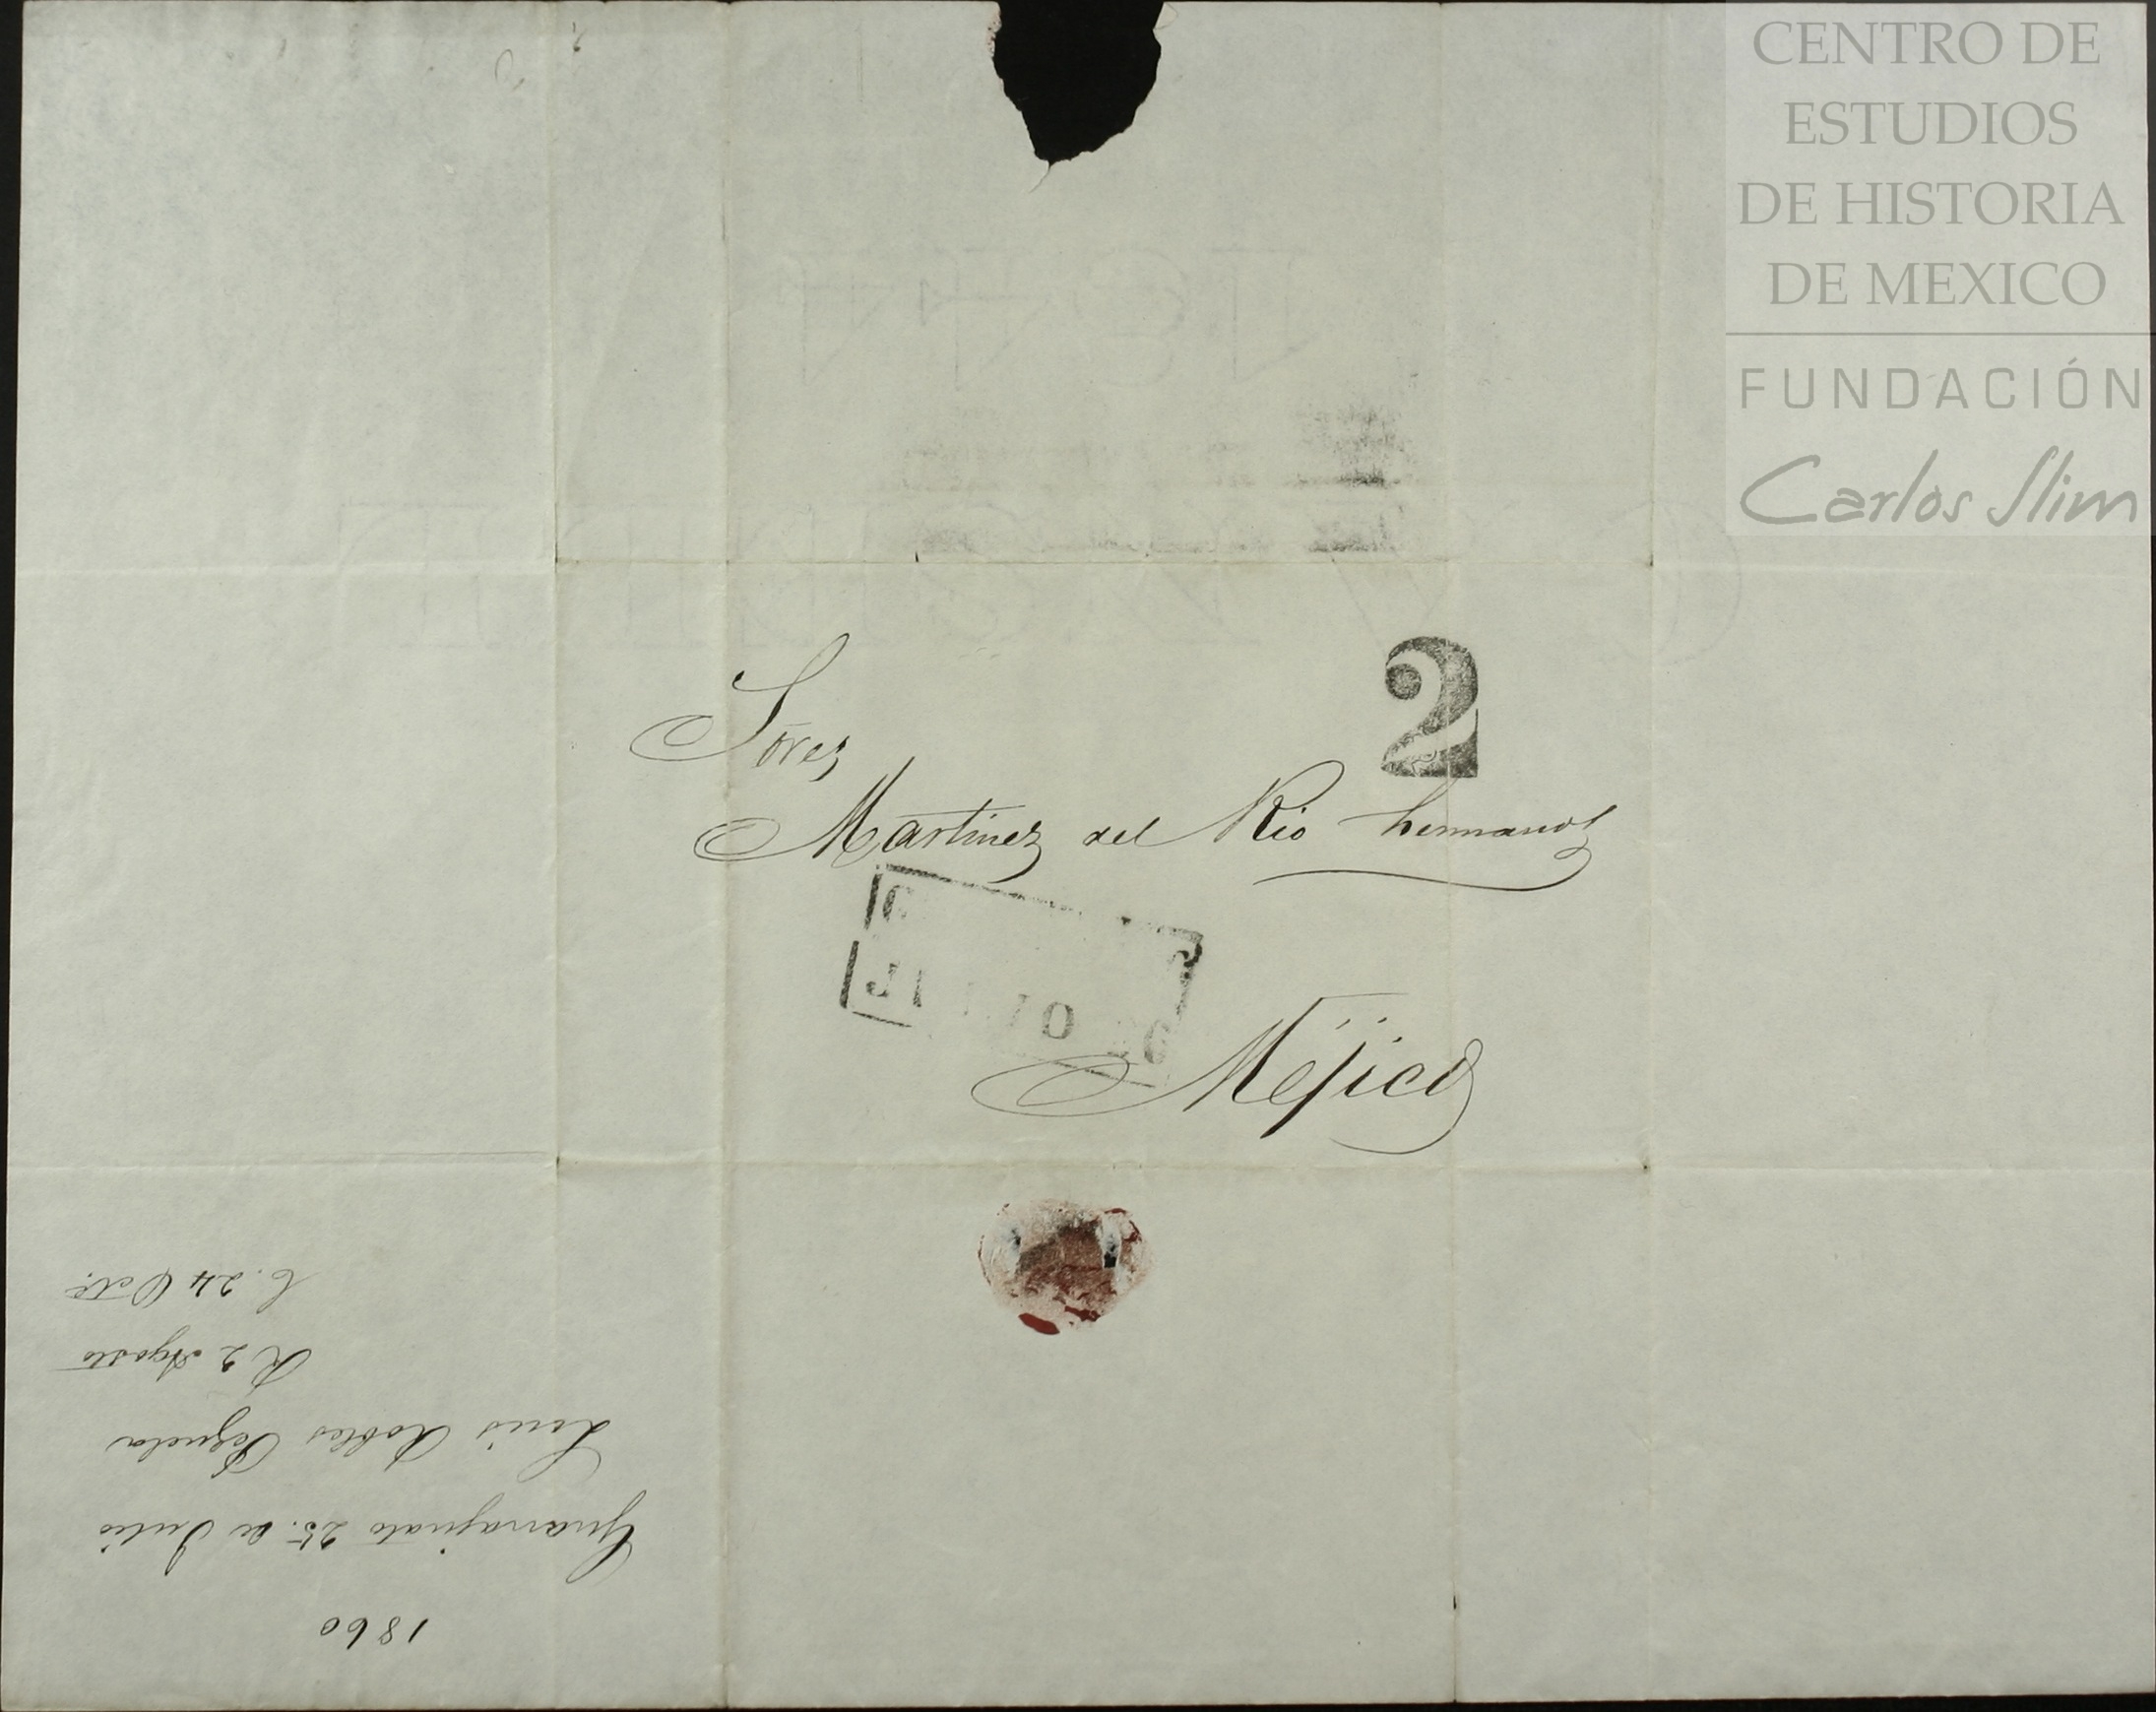 CENTRO DE
ESTUDIOS
DE HISTORIA
DE MEXICO
FUNDACIÓN
Carlos Slim
2
Sōres
Martinez del Rio hermanos
JULIO 26
Méjico
1860
Guanajuato 25. de Julio
Luis Robles Pezuela
R 2 Agosto
C. 24 Oct.